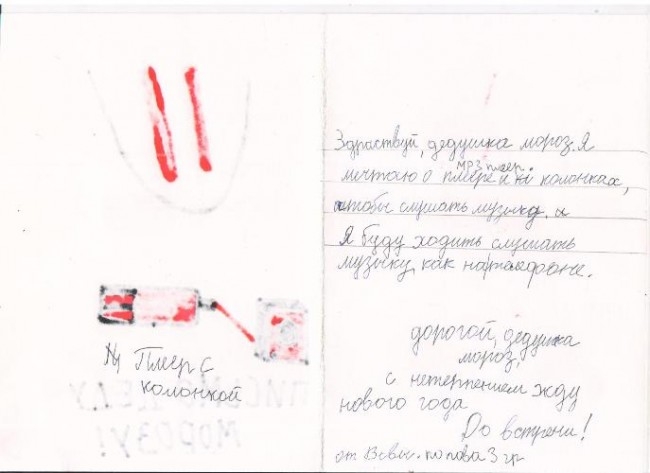 Плеер с
колонкой
ПИСЬМО ДЕДУ
МОРОЗУ!
Здраствуй, дедушка мороз. Я
MP3 плеер.
мечтаю о плеере и колонках,
чтобы слушать музыку. и
Я буду ходить слушать
музыку, как на телефоне.
дорогой, дедушка
мороз,
с нетерпением жду
нового года
До встречи!
от попова 3 гр